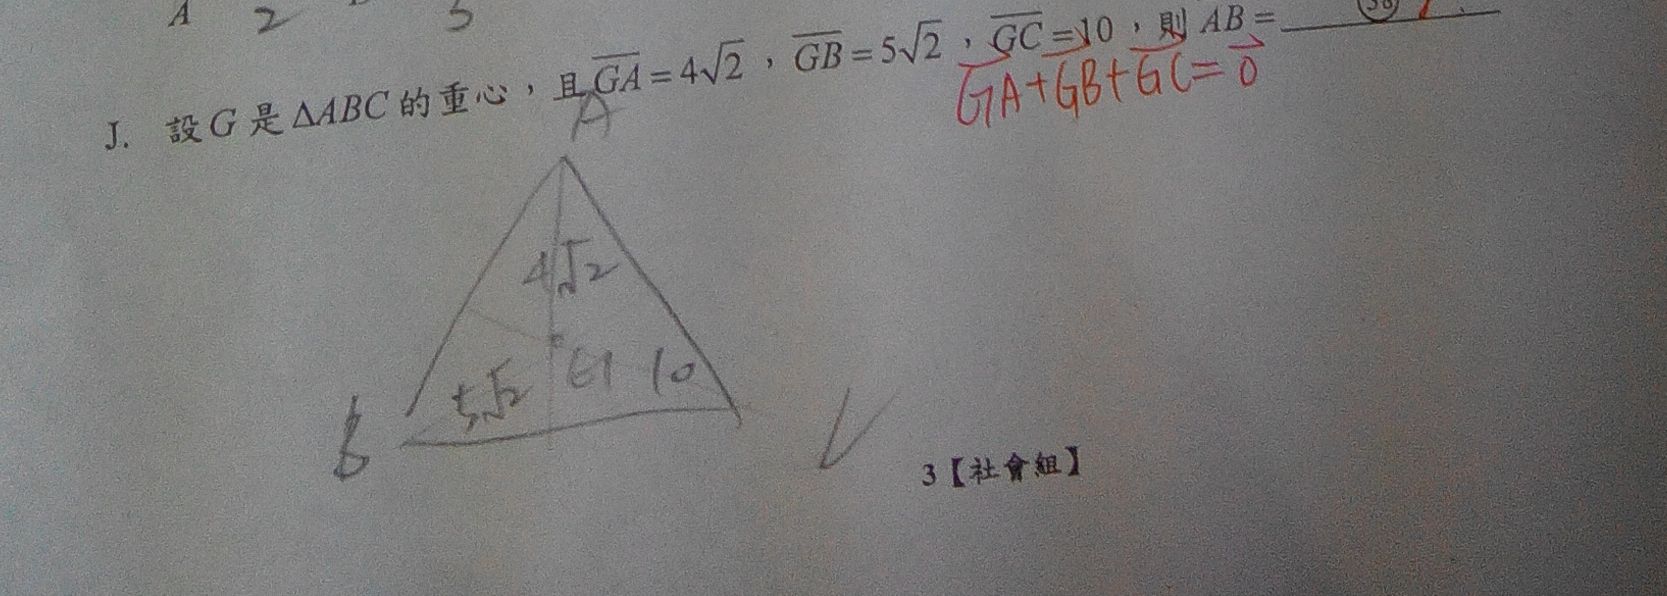 A 2 5
J. 設G是ΔABC的重心，且GA=4√2，GB=5√2，GC=10，則AB=
GA+GB+GC=0
A
4√2
5√2 G 10
B C
3【社會組】